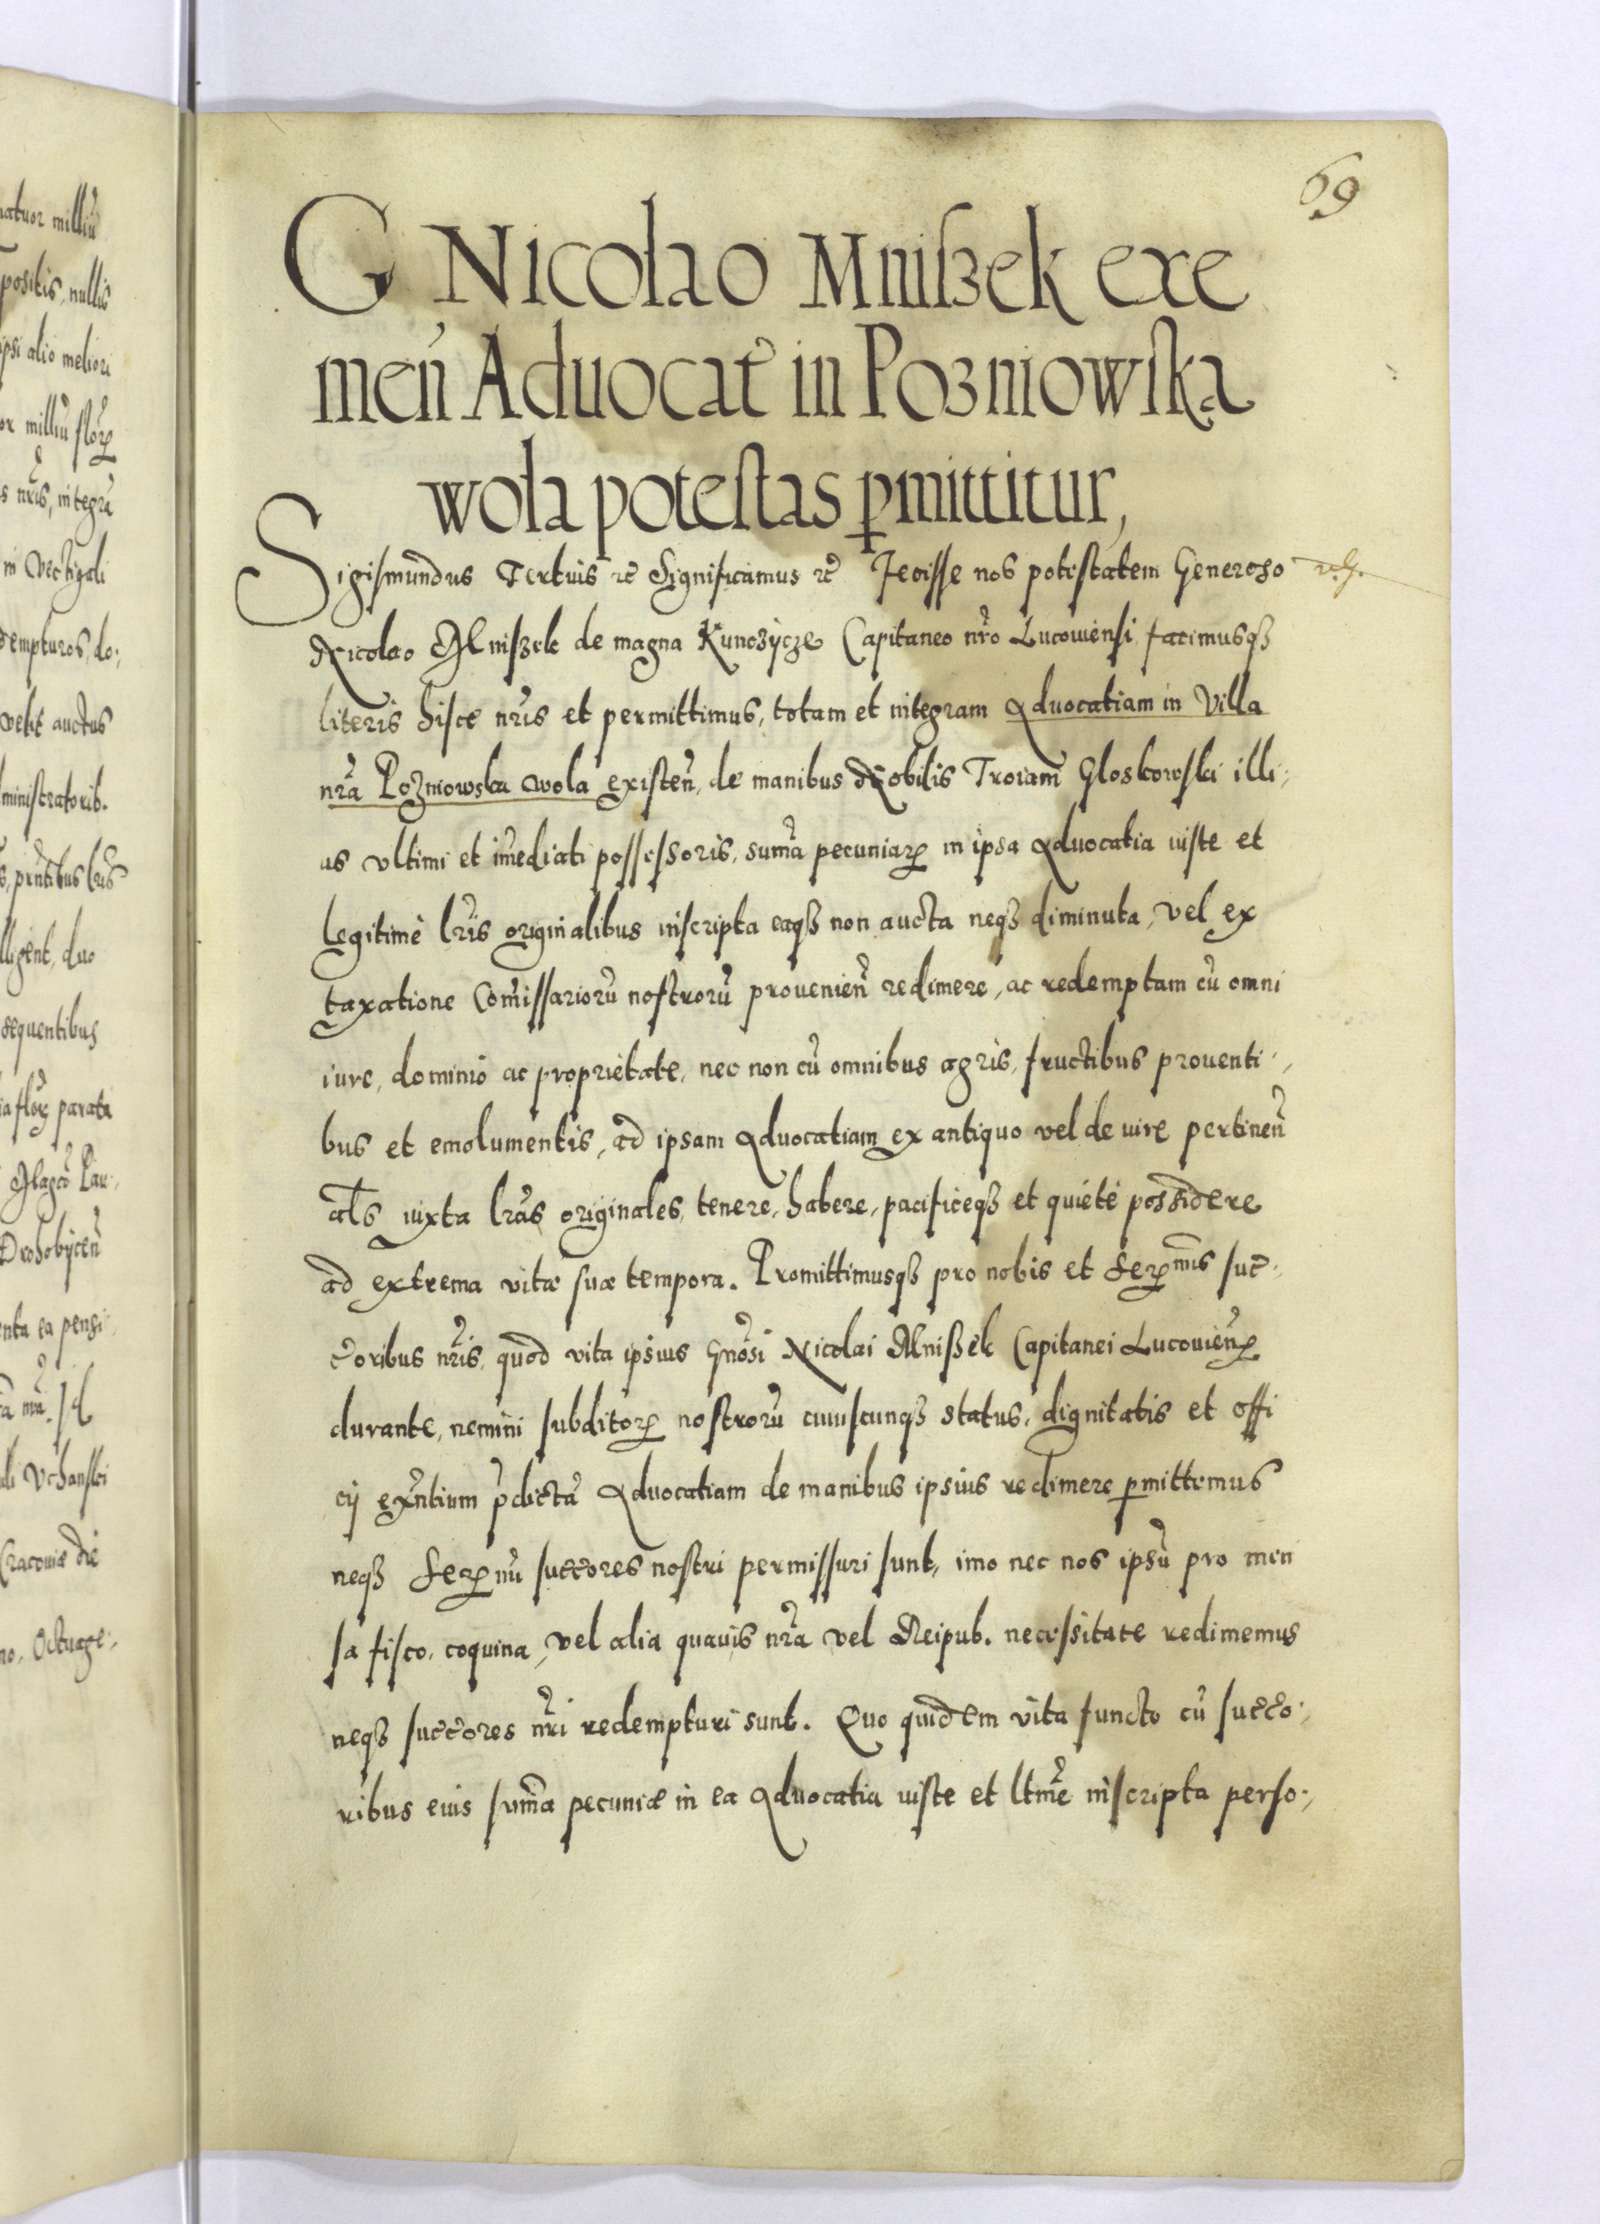 69
G Nicolao Mnißek exe
men̄ Aduocat̄ in Pozniowska
wola potestas p̱mittitur,
Sigismundus Tertius rē Significamus rē Fecisse nos potestatem Generoso
Nicolao Mnißek de magna Kunczÿcze Capitaneo nr̃o Lucouiensi, facimusqȝ
literis hisce nr̃is et permittimus, totam et integram Aduocatiam in Villa
nr̃a Pozniowska wola existen̄, de manibus Nobilis Troiani Gloskowski illi,
us vltimi et im̄ediati possessoris, sum̄a pecuniaꝝ in ipsa Aduocatia iuste et
legitimè lr̃is originalibus inscripta eaqȝ non aucta neqȝ diminuta, vel ex
taxatione Com̄issarioru̅ nostroru̅ prouenien̄ redimere, ac redemptam cu̅ omni
iure, dominio ac proprietate, nec non cu̅ omnibus agris, fructibus prouenti,
bus et emolumentis, ad ipsam Aduocatiam ex antiquo vel de iure pertinen̄
al̃s iuxta lr̃as originales, tenere, habere, pacificeqȝ et quietè possidere
ad extrema vitæ suæ tempora. Promittimusqȝ pro nobis et Sereꝝmis suc̄,
c̄oribus nr̃is, quod vita ipsius Gnõsi Nicolai Mnißek Capitanei Lucouien̄
durante, nemini subditoꝝ nostroru̅ cuiuscunqȝ status, dignitatis et offi
cij exñtium p̄dicta̅ Aduocatiam de manibus ipsius redimere p̱mittemus
neqȝ Sereꝝmi succ̄ores nostri permissuri sunt, imo nec nos ipsu̅ pro men
sa fisco, coquina, vel alia quauis nr̃a vel Reipub. necessitate redimemus
neqȝ succ̄ores nr̃i redempturi sunt. Quo quidem vita functo cu̅ succo,
ribus eius sum̄a pecuniæ in ea Aduocatia iuste et ltm̄e inscripta perso,